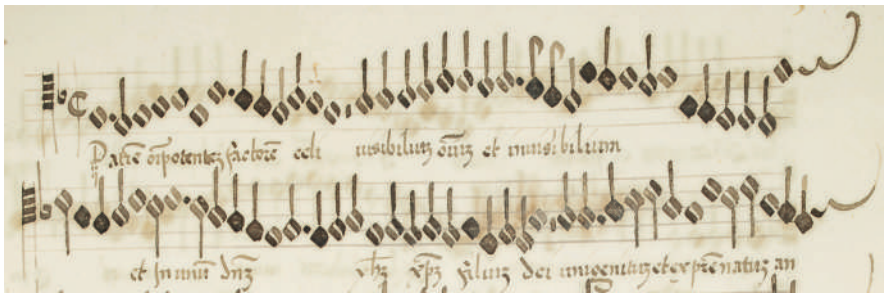 Patrē oīpotentez factorē celi visibiliuz oīuz et inuisibilium
et In unū dnz yhz xpz filiuz dei unigenituz et ex prē natuz an